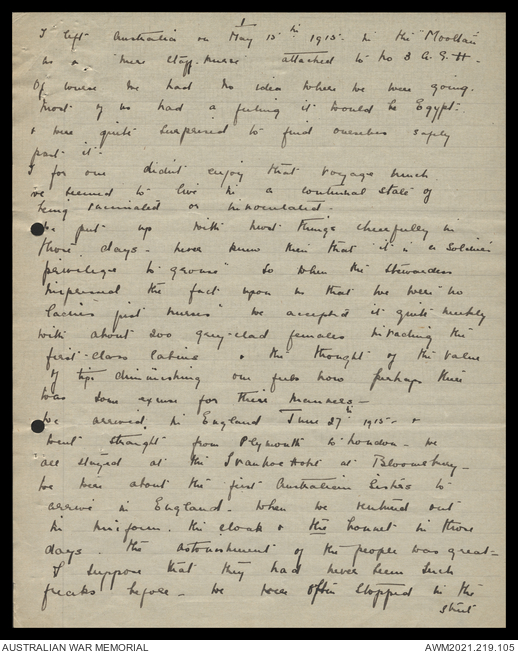 I left Australia on May 15th 1915. in the "Mooltan"
as a mere staff-nurse attached to No 3 A.G.H.
Of course we had no idea where we were going.
Most of us had a feeling it would be Egypt.
& were quite surprised to find ourselves safely
past it.
I for one didn't enjoy that voyage much
we seemed to live in a continual state of
being vaccinated or innoculated.
We put up with most things cheerfully in
those days - never knew then that "it is a soldiers
priviliege to grouse" So when the stewardess
impressed the fact upon us that we were "no
ladies just nurses" we accepted it quite meekly
with about 200 grey-clad females invading the
first-class cabins & the thought of the value
of tips diminishing one feels now perhaps there
was some excuse for their manners -
We arrived in England June 27th 1915 - &
went straight from Plymouth to London - we
all stayed at the Ivanhoe Hotel at Bloomsbury -
We were about the first Australian Sisters to
arrive in England - When we ventured out
in uniform. the cloak & the bonnet in those
days. the astonishment of the people was great -
I suppose that they had never seen such
freaks before - We were often stopped in the
street
AUSTRALIAN WAR MEMORIAL
AWM2021.219.105